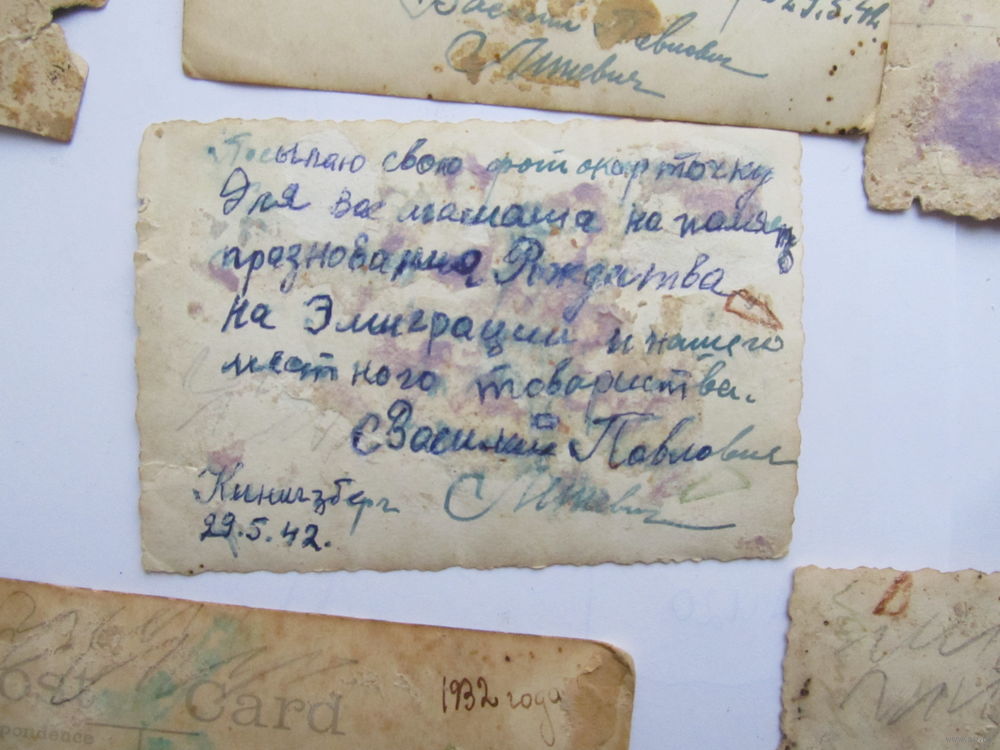 Василий Павлович
29.5.42.
Посылаю свою фотокарточку
Для вас мамаша на память
празнования Рождества
на Эмиграции и нашего
местного товариства.
Василий Павлович
Кинигзберг
29.5.42.
ost Card
pondence
1932 года